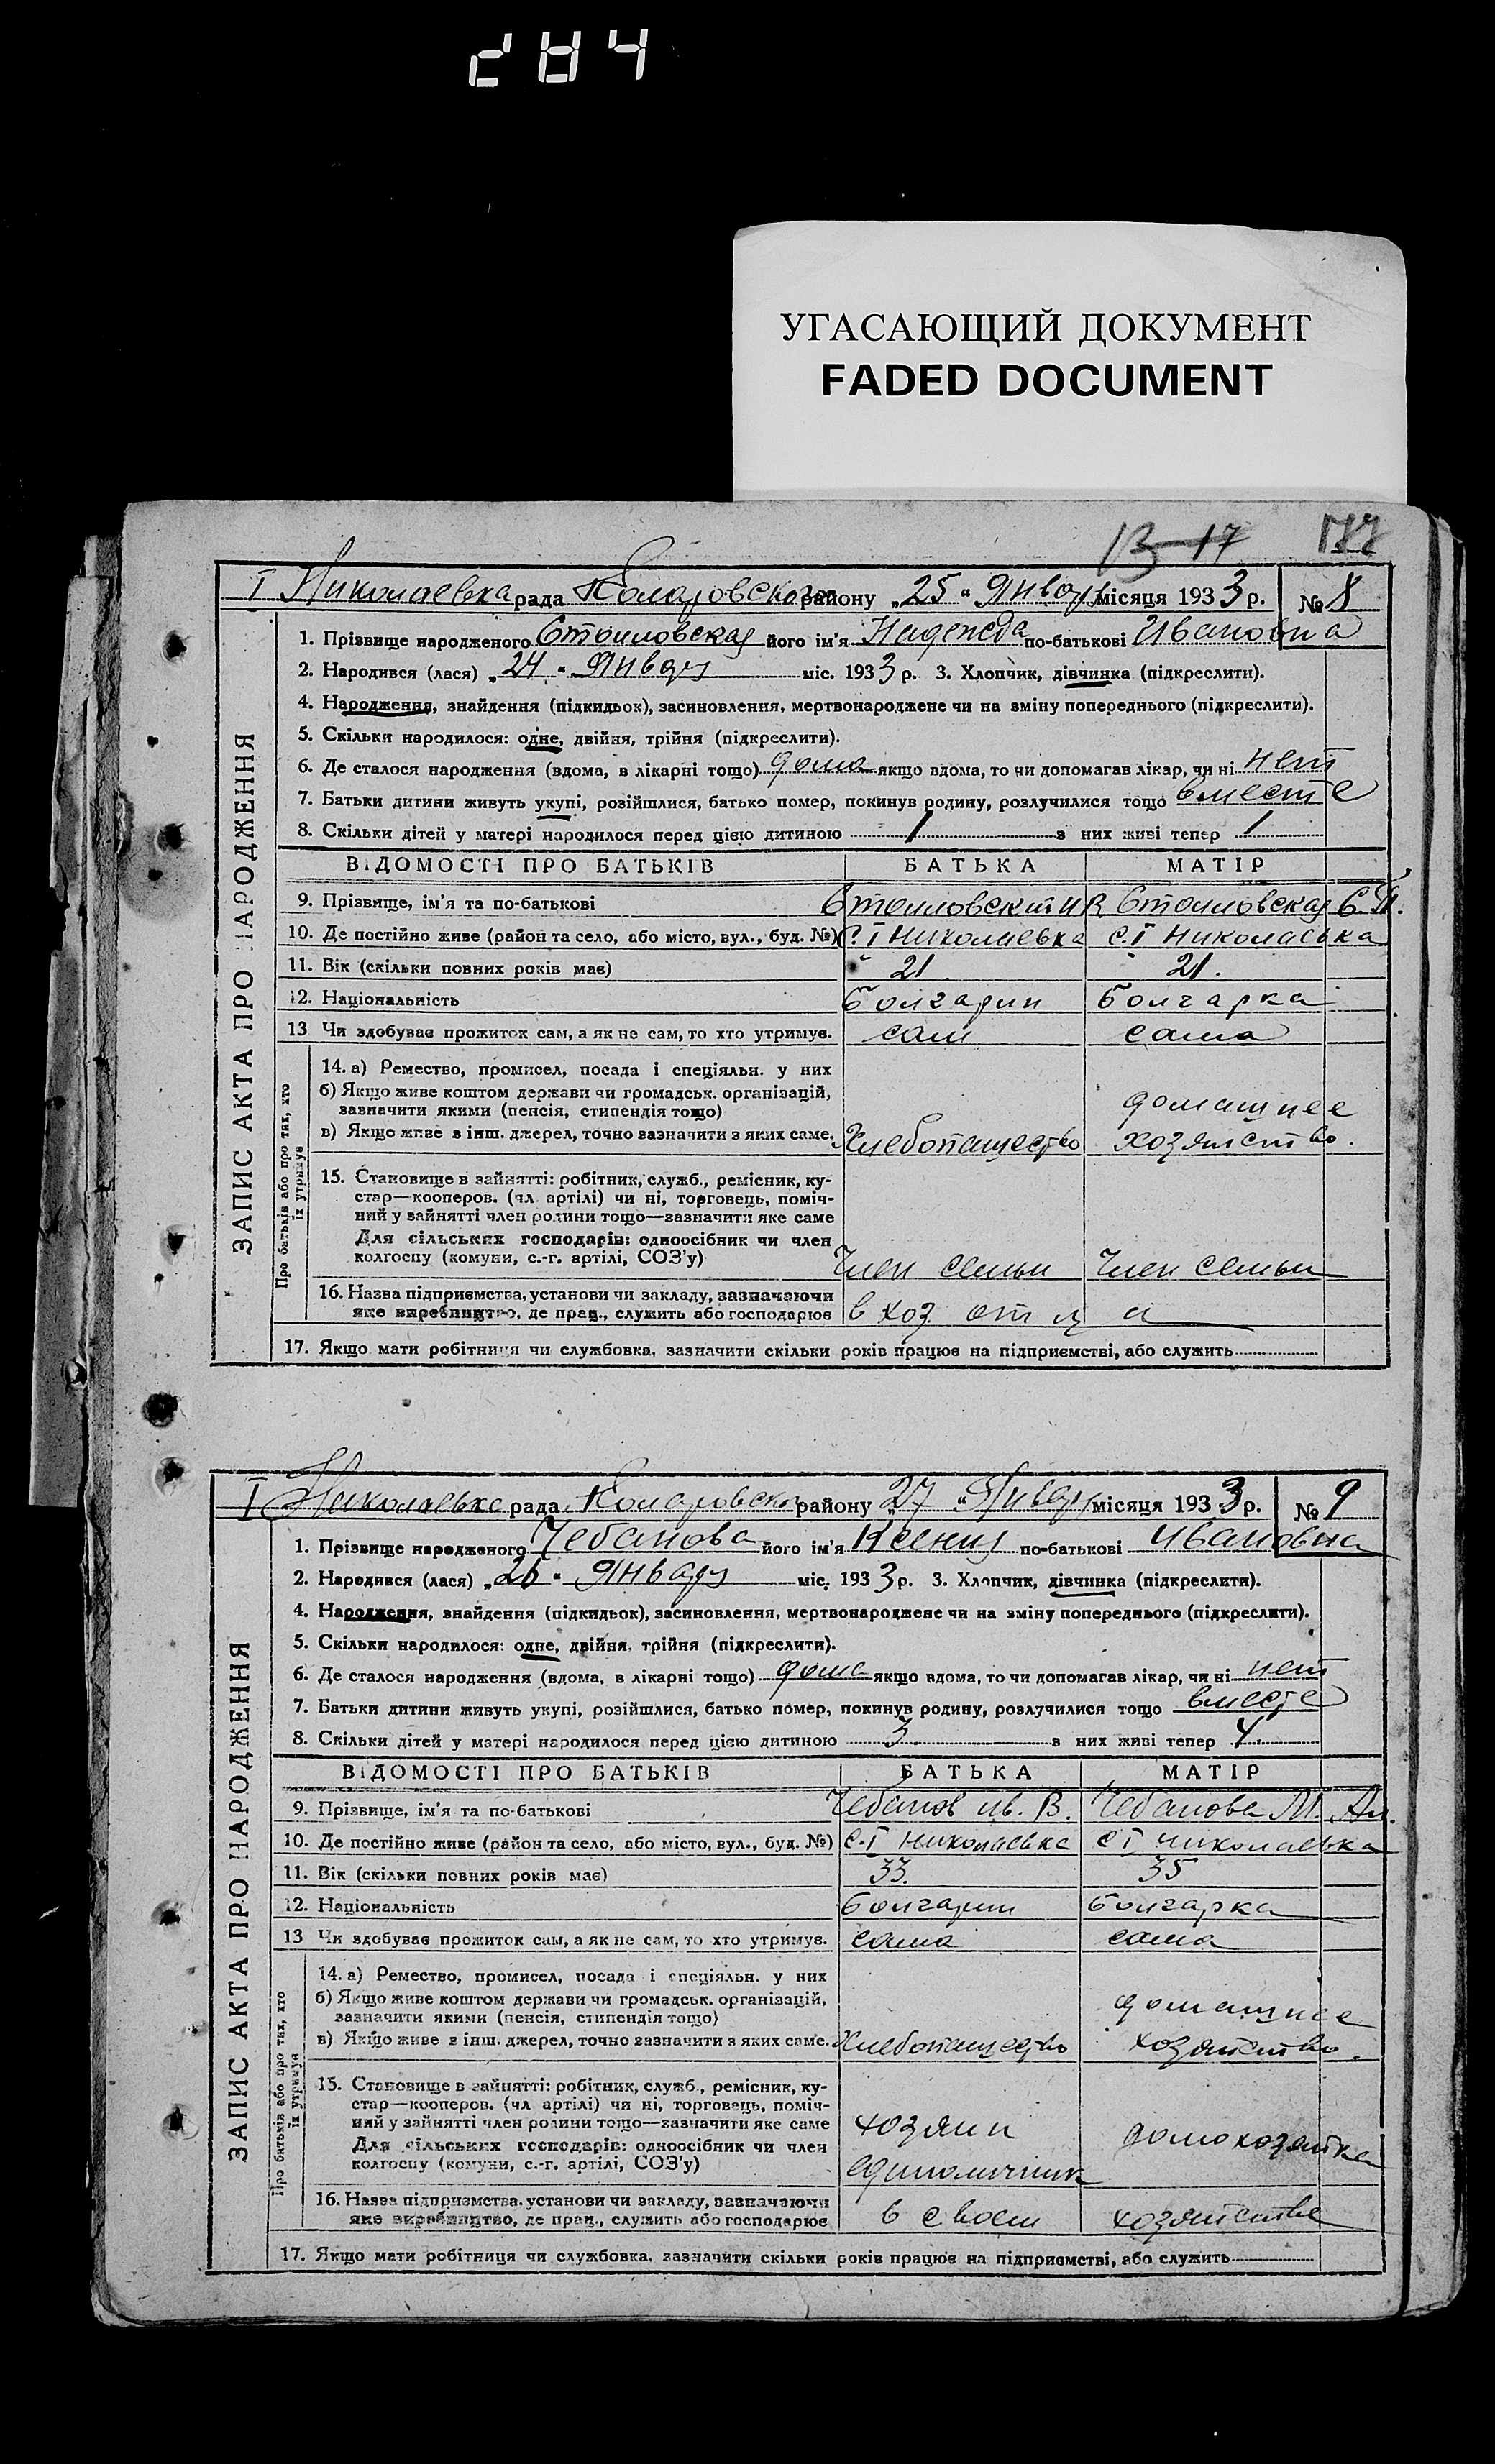 284
УГАСАЮЩИЙ ДОКУМЕНТ
FADED DOCUMENT
13-17 177
ЗАПИС АКТА ПРО НАРОДЖЕННЯ
I Николаевка рада Коларовского району „25“ Январь місяця 1933 р. № 8
1. Прізвище народженого Стоиловская його ім'я Надежда по-батькові Ивановна
2. Народився (лася) „24“ Январь міс. 1933 р. 3. Хлопчик, дівчинка (підкреслити).
4. Народження, знайдення (підкидьок), засиновлення, мертвонароджене чи на зміну попереднього (підкреслити).
5. Скільки народилося: одне, двійня, трійня (підкреслити).
6. Де сталося народження (вдома, в лікарні тощо) дома якщо вдома, то чи допомагав лікар, чи ні нет
7. Батьки дитини живуть укупі, розійшлися, батько помер, покинув родину, розлучилися тощо вместе
8. Скільки дітей у матері народилося перед цією дитиною 1 з них живі тепер 1
ВІДОМОСТІ ПРО БАТЬКІВ БАТЬКА МАТІР
9. Прізвище, ім'я та по-батькові Стоиловский И В Стоиловская С. П.
10. Де постійно живе (район та село, або місто, вул., буд. №) С. I Николаевка с. I Николаевка
11. Вік (скільки повних років має) 21 21.
12. Національність Болгарин Болгарка
13 Чи здобуває прожиток сам, а як не сам, то хто утримує. сам сама
Про батьків або про тих, хто їх утримує
14. а) Ремество, промисел, посада і спеціяльн. у них
б) Якщо живе коштом держави чи громадськ. організацій,
зазначити якими (пенсія, стипендія тощо) домашнее
в) Якщо живе з інш. джерел, точно зазначити з яких саме. Хлебопашество хозяйство.
15. Становище в зайнятті: робітник, служб., ремісник, ку-
стар—кооперов. (чл. артілі) чи ні, торговець, поміч-
ний у зайнятті член родини тощо—зазначити яке саме
Для сільських господарів: одноосібник чи член
колгоспу (комуни, с.-г. артілі, СОЗ'у) Член семьи Член семьи
16. Назва підприємства, установи чи закладу, зазначаючи
яке виробництво, де прац., служить або господарює в хоз отца
17. Якщо мати робітниця чи службовка, зазначити скільки років працює на підприємстві, або служить
ЗАПИС АКТА ПРО НАРОДЖЕННЯ
I Николаевка рада Коларовско району „27“ Январь місяця 1933 р. № 9
1. Прізвище народженого Чебанова його ім'я Ксения по-батькові Ивановна
2. Народився (лася) „26“ Январь міс. 1933 р. 3. Хлопчик, дівчинка (підкреслити).
4. Народження, знайдення (підкидьок), засиновлення, мертвонароджене чи на зміну попереднього (підкреслити).
5. Скільки народилося: одне, двійня, трійня (підкреслити).
6. Де сталося народження (вдома, в лікарні тощо) дома якщо вдома, то чи допомагав лікар, чи ні нет
7. Батьки дитини живуть укупі, розійшлися, батько помер, покинув родину, розлучилися тощо вместе
8. Скільки дітей у матері народилося перед цією дитиною 3 з них живі тепер 4.
ВІДОМОСТІ ПРО БАТЬКІВ БАТЬКА МАТІР
9. Прізвище, ім'я та по-батькові Чебанов Ив. В. Чебанова М. Ан.
10. Де постійно живе (район та село, або місто, вул., буд. №) с. I Николаевка с I Николаевка
11. Вік (скільки повних років має) 33. 35
12. Національність Болгарин Болгарка
13 Чи здобуває прожиток сам, а як не сам, то хто утримує. сама сама
Про батьків або про тих, хто їх утримує
14. а) Ремество, промисел, посада і спеціяльн. у них
б) Якщо живе коштом держави чи громадськ. організацій,
зазначити якими (пенсія, стипендія тощо) домашнее
в) Якщо живе з інш. джерел, точно зазначити з яких саме. Хлебопашество хозяйство.
15. Становище в зайнятті: робітник, служб., ремісник, ку-
стар—кооперов. (чл артілі) чи ні, торговець, поміч-
ний у зайнятті член родини тощо—зазначити яке саме хозяин домохозяйка
Для сільських господарів: одноосібник чи член
колгоспу (комуни, с.-г. артілі, СОЗ'у) единоличник
16. Назва підприємства, установи чи закладу, зазначаючи
яке виробництво, де прац., служить або господарює в своем хозяйстве
17. Якщо мати робітниця чи службовка, зазначити скільки років працює на підприємстві, або служить